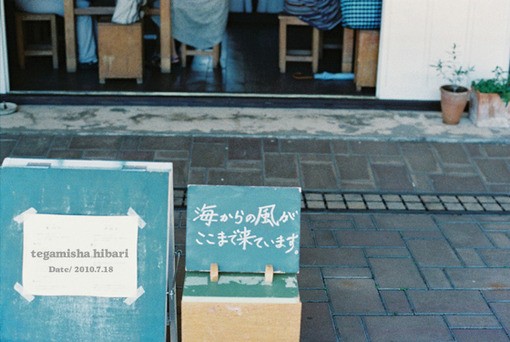 tegamisha hibari
Date/ 2010.7.18
海からの風が
ここまで来ています